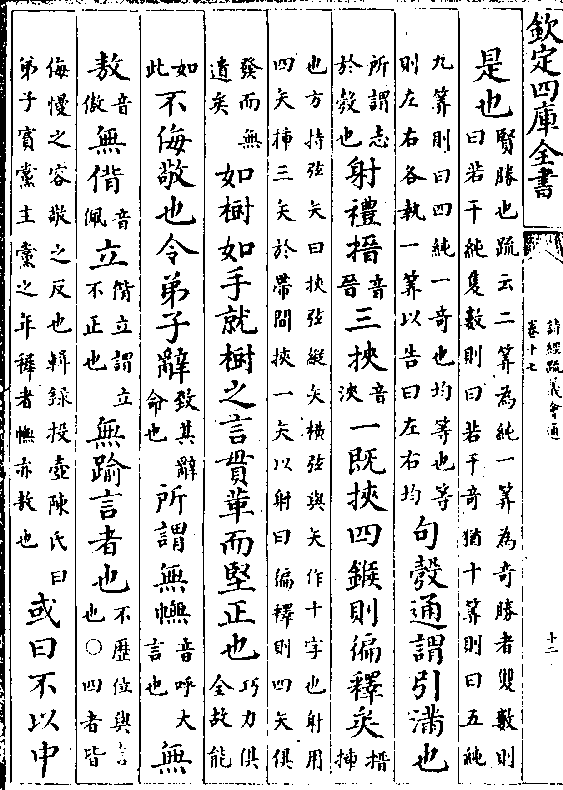 欽定四庫全書
詩經疏義會通
卷十七
十二
是也賢勝也疏云二筭為純一筭為奇勝者雙數則
曰若干純隻數則曰若干奇猶十筭則曰五純
九筭則曰四純一奇也均等也等
則左右各執一筭以告曰左右均句彀通謂引滿也
所謂志於彀也射禮搢音晉三挾音浹一既挾四鍭則徧釋矣搢揷
也方持弦矢曰挾弦縱矢橫弦與矢作十字也射用
四矢揷三矢於帶間挾一矢以射曰徧釋則四矢俱
發而無遺矣如樹如手就樹之言貫革而堅正也巧力俱全故能
如此不侮敬也令弟子辭致其辭命也所謂無幠音呼大言也無
敖音傲無偝音佩立偝立謂立不正也無踰言者也不歷位與言也○四者皆
侮慢之容敬之反也輯録投壺陳氏曰
弟子賓黨主黨之年穉者幠亦敖也或曰不以中